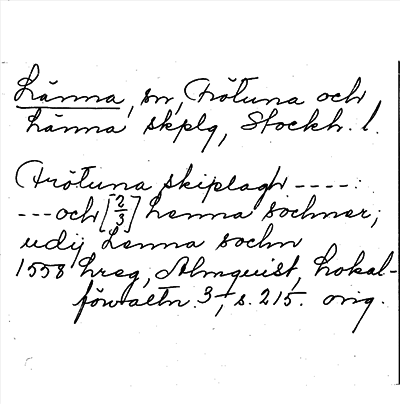 Länna, sn, Frötuna och
Länna skplg, Stockh. l.
Frötuna skiplagh ----:
---och [2/3] Lenna sochner;
udij Lenna sochn
1558 hreg, Almquist, Lokal-
förvaltn. 3, s. 215. orig.